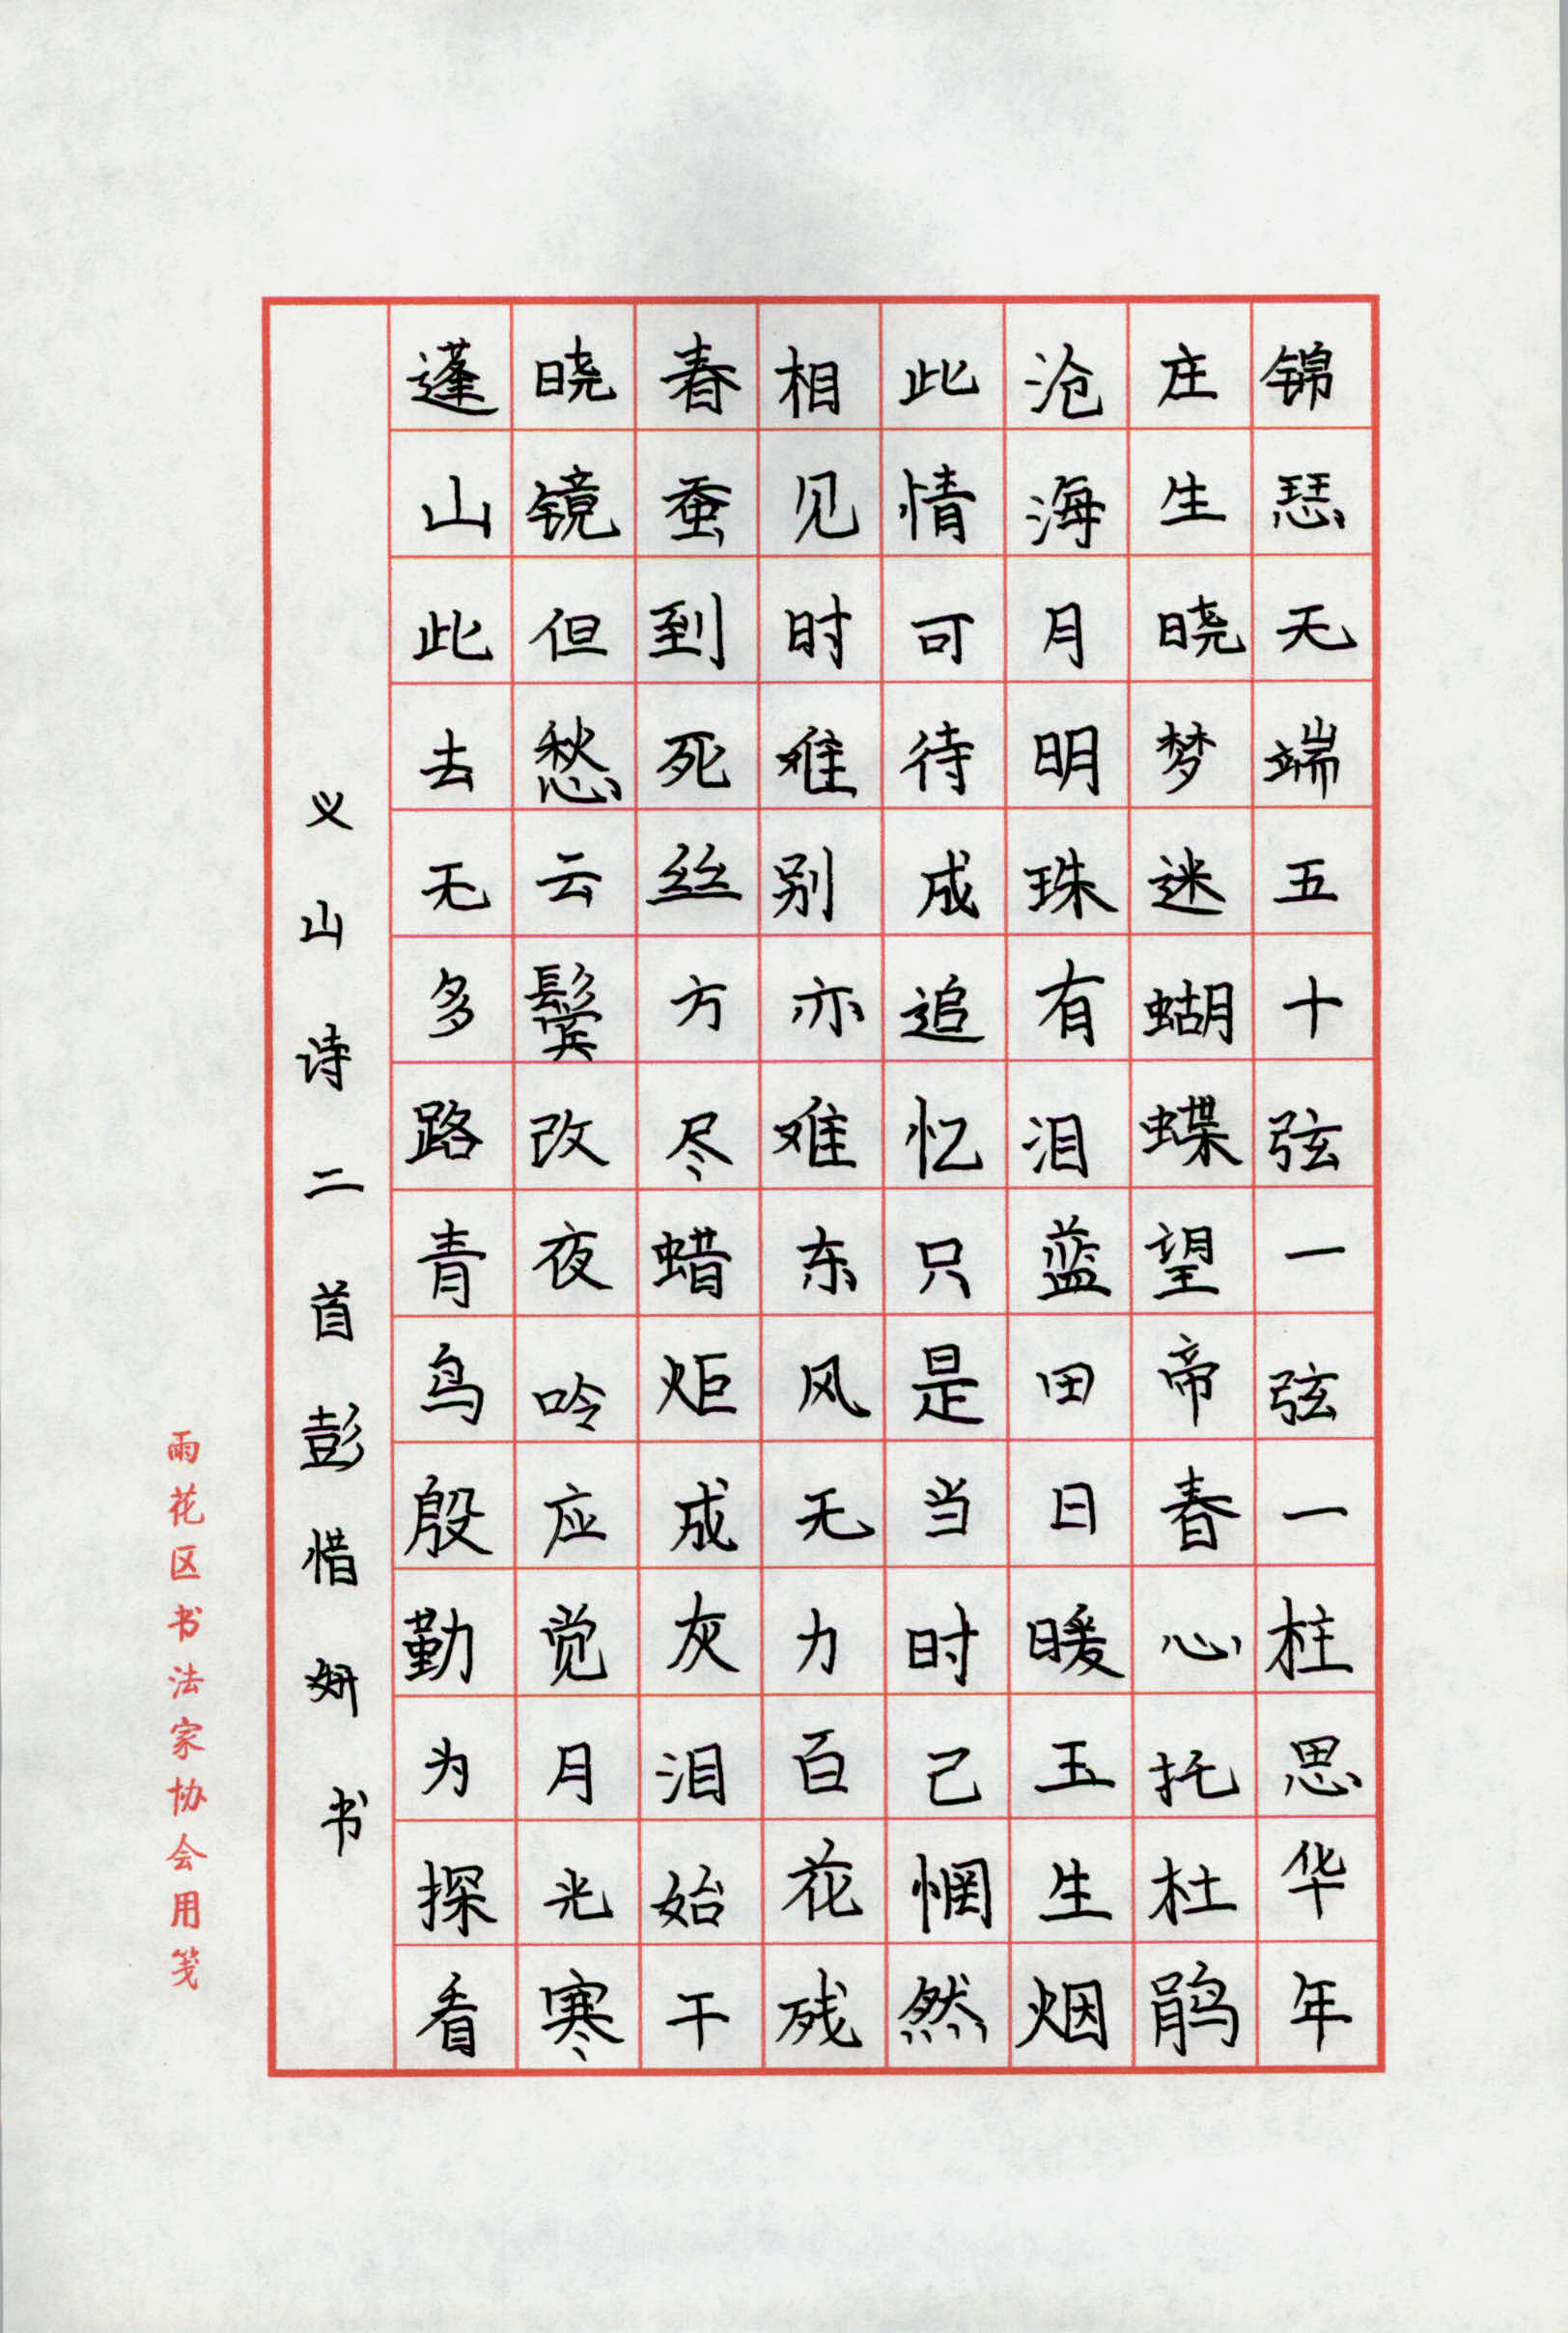 锦瑟无端五十弦一弦一柱思华年
庄生晓梦迷蝴蝶望帝春心托杜鹃
沧海月明珠有泪蓝田日暖玉生烟
此情可待成追忆只是当时已惘然
相见时难别亦难东风无力百花残
春蚕到死丝方尽蜡炬成灰泪始干
晓镜但愁云鬓改夜吟应觉月光寒
蓬山此去无多路青鸟殷勤为探看
义山诗二首彭惜妍书
雨花区书法家协会用笺